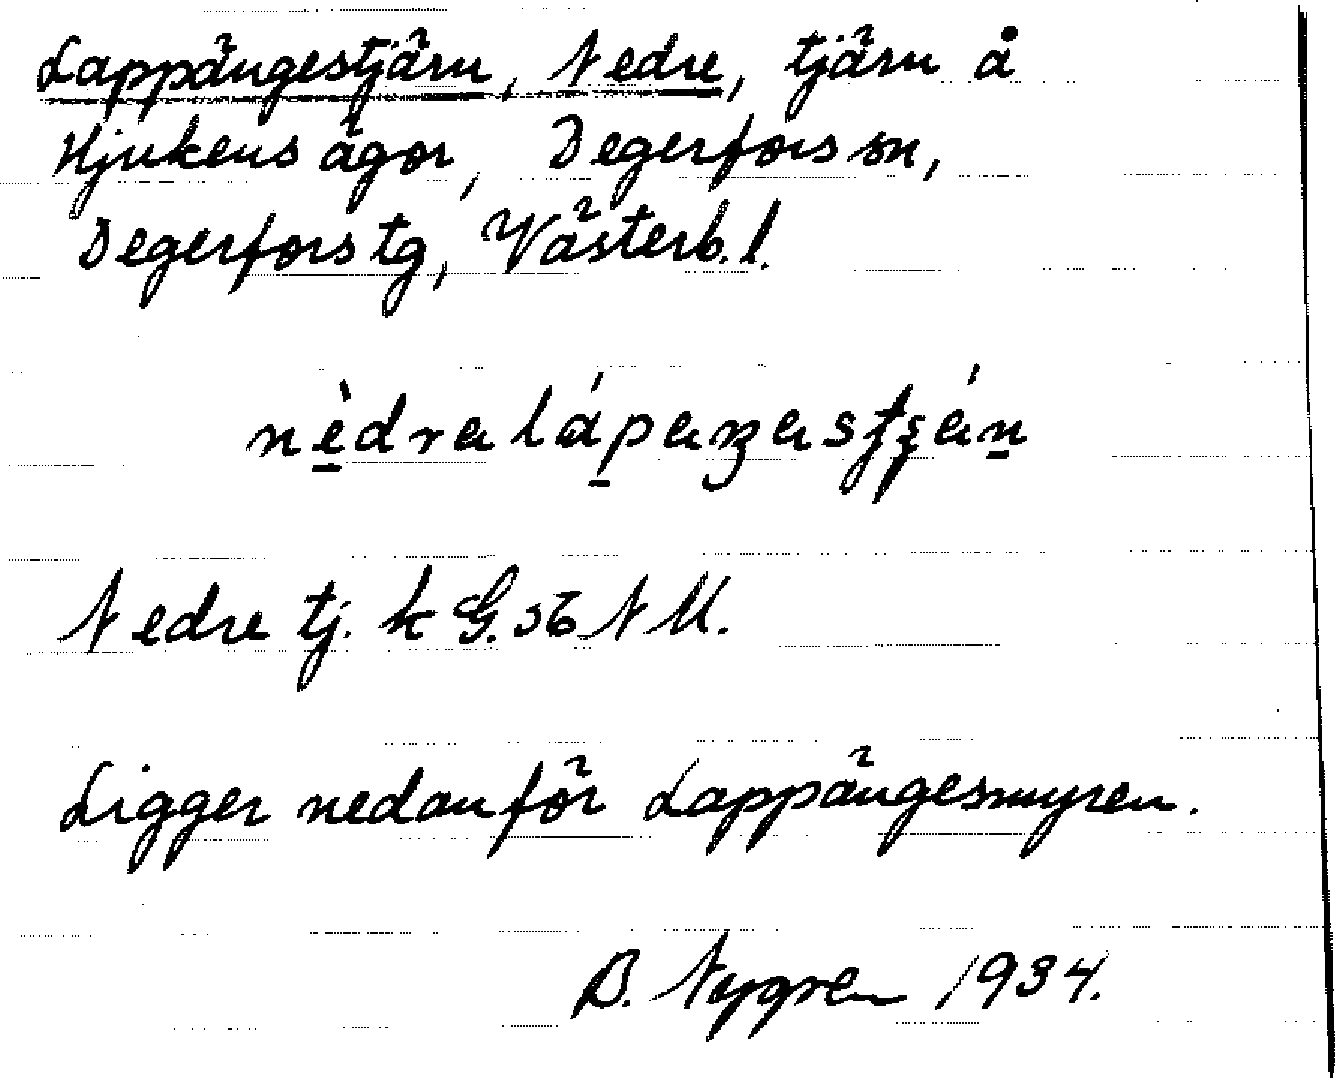 Lappängestjärn, Nedre, tjärn å
Hjukens ägor, Degerfors sn,
Degerfors tg, Västerb. l.
Nedre tj. k G. 36 NU.
Ligger nedanför Lappängesmyren.
B. Nygren 1934.